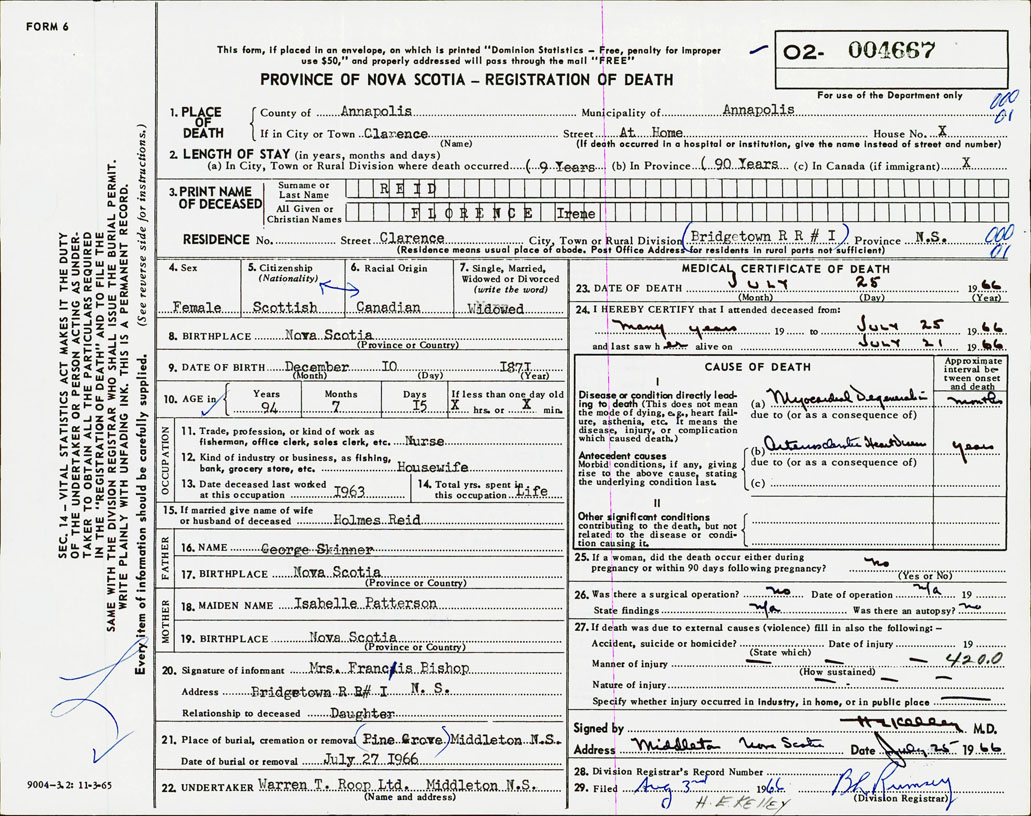 FORM 6
This form, if placed in an envelope, on which is printed "Dominion Statistics – Free, penalty for improper
use $50," and properly addressed will pass through the mail "FREE"
PROVINCE OF NOVA SCOTIA – REGISTRATION OF DEATH
O2- 004667
For use of the Department only
000
01
1. PLACE OF DEATH
County of Annapolis Municipality of Annapolis
If in City or Town Clarence Street At Home House No. X
(Name) (If death occurred in a hospital or institution, give the name instead of street and number)
2. LENGTH OF STAY (in years, months and days)
(a) In City, Town or Rural Division where death occurred ( 9 Years (b) In Province ( 90 Years (c) In Canada (if immigrant) X
3. PRINT NAME OF DECEASED
Surname or Last Name REID
All Given or Christian Names FLORENCE Irene
RESIDENCE No. Street Clarence City, Town or Rural Division (Bridgetown R R # I) Province N.S.
000
01
(Residence means usual place of abode. Post Office Address for residents in rural parts not sufficient)
4. Sex
Female
5. Citizenship
(Nationality)
Scottish
6. Racial Origin
Canadian
7. Single, Married,
Widowed or Divorced
(write the word)
Widowed
8. BIRTHPLACE Nova Scotia
(Province or Country)
9. DATE OF BIRTH December IO I87I
(Month) (Day) (Year)
10. AGE in
Years Months Days If less than one day old
94 7 I5 X hrs. or X min.
OCCUPATION
11. Trade, profession, or kind of work as
fisherman, office clerk, sales clerk, etc. Nurse
12. Kind of industry or business, as fishing,
bank, grocery store, etc. Housewife
13. Date deceased last worked
at this occupation I963
14. Total yrs. spent in
this occupation Life
15. If married give name of wife
or husband of deceased Holmes Reid
FATHER
16. NAME George Skinner
17. BIRTHPLACE Nova Scotia
(Province or Country)
MOTHER
18. MAIDEN NAME Isabelle Patterson
19. BIRTHPLACE Nova Scotia
(Province or Country)
20. Signature of informant Mrs. Francis Bishop
Address Bridgetown R R# I N. S.
Relationship to deceased Daughter
21. Place of burial, cremation or removal (Pine Grove) Middleton N.S.
Date of burial or removal July 27 I966
22. UNDERTAKER Warren T. Roop Ltd. Middleton N.S.
(Name and address)
MEDICAL CERTIFICATE OF DEATH
23. DATE OF DEATH JULY 25 1966
(Month) (Day) (Year)
24. I HEREBY CERTIFY that I attended deceased from:
many years 19 to JULY 25 1966
and last saw her alive on JULY 21 1966
CAUSE OF DEATH
Approximate
interval be-
tween onset
and death
I
Disease or condition directly lead-
ing to death (This does not mean
the mode of dying, e.g., heart fail-
ure, asthenia, etc. It means the
disease, injury, or complication
which caused death.)
(a) Myocardial Degeneration months
due to (or as a consequence of)
Antecedent causes
Morbid conditions, if any, giving
rise to the above cause, stating
the underlying condition last.
(b) Arteriosclerotic Heart Disease years
due to (or as a consequence of)
(c)
II
Other significant conditions
contributing to the death, but not
related to the disease or condi-
tion causing it.
25. If a woman, did the death occur either during
pregnancy or within 90 days following pregnancy? no
(Yes or No)
26. Was there a surgical operation? no Date of operation n/a 19
State findings n/a Was there an autopsy? no
27. If death was due to external causes (violence) fill in also the following: –
Accident, suicide or homicide? Date of injury 19
(State which)
Manner of injury 420.0
(How sustained)
Nature of injury
Specify whether injury occurred in industry, in home, or in public place
Signed by H E Kelley M.D.
Address Middleton Nova Scotia Date July 25 1966
28. Division Registrar's Record Number
29. Filed Aug 3rd 1966 Rumsey
(Division Registrar)
H. E. KELLEY
SEC. 14 – VITAL STATISTICS ACT MAKES IT THE DUTY
OF THE UNDERTAKER OR PERSON ACTING AS UNDER-
TAKER TO OBTAIN ALL THE PARTICULARS REQUIRED
IN THE "REGISTRATION OF DEATH" AND TO FILE THE
SAME WITH THE DIVISION REGISTRAR WHO SHALL ISSUE THE BURIAL PERMIT.
WRITE PLAINLY WITH UNFADING INK. THIS IS A PERMANENT RECORD.
Every item of information should be carefully supplied. (See reverse side for instructions.)
9004-3.2: 11-3-65